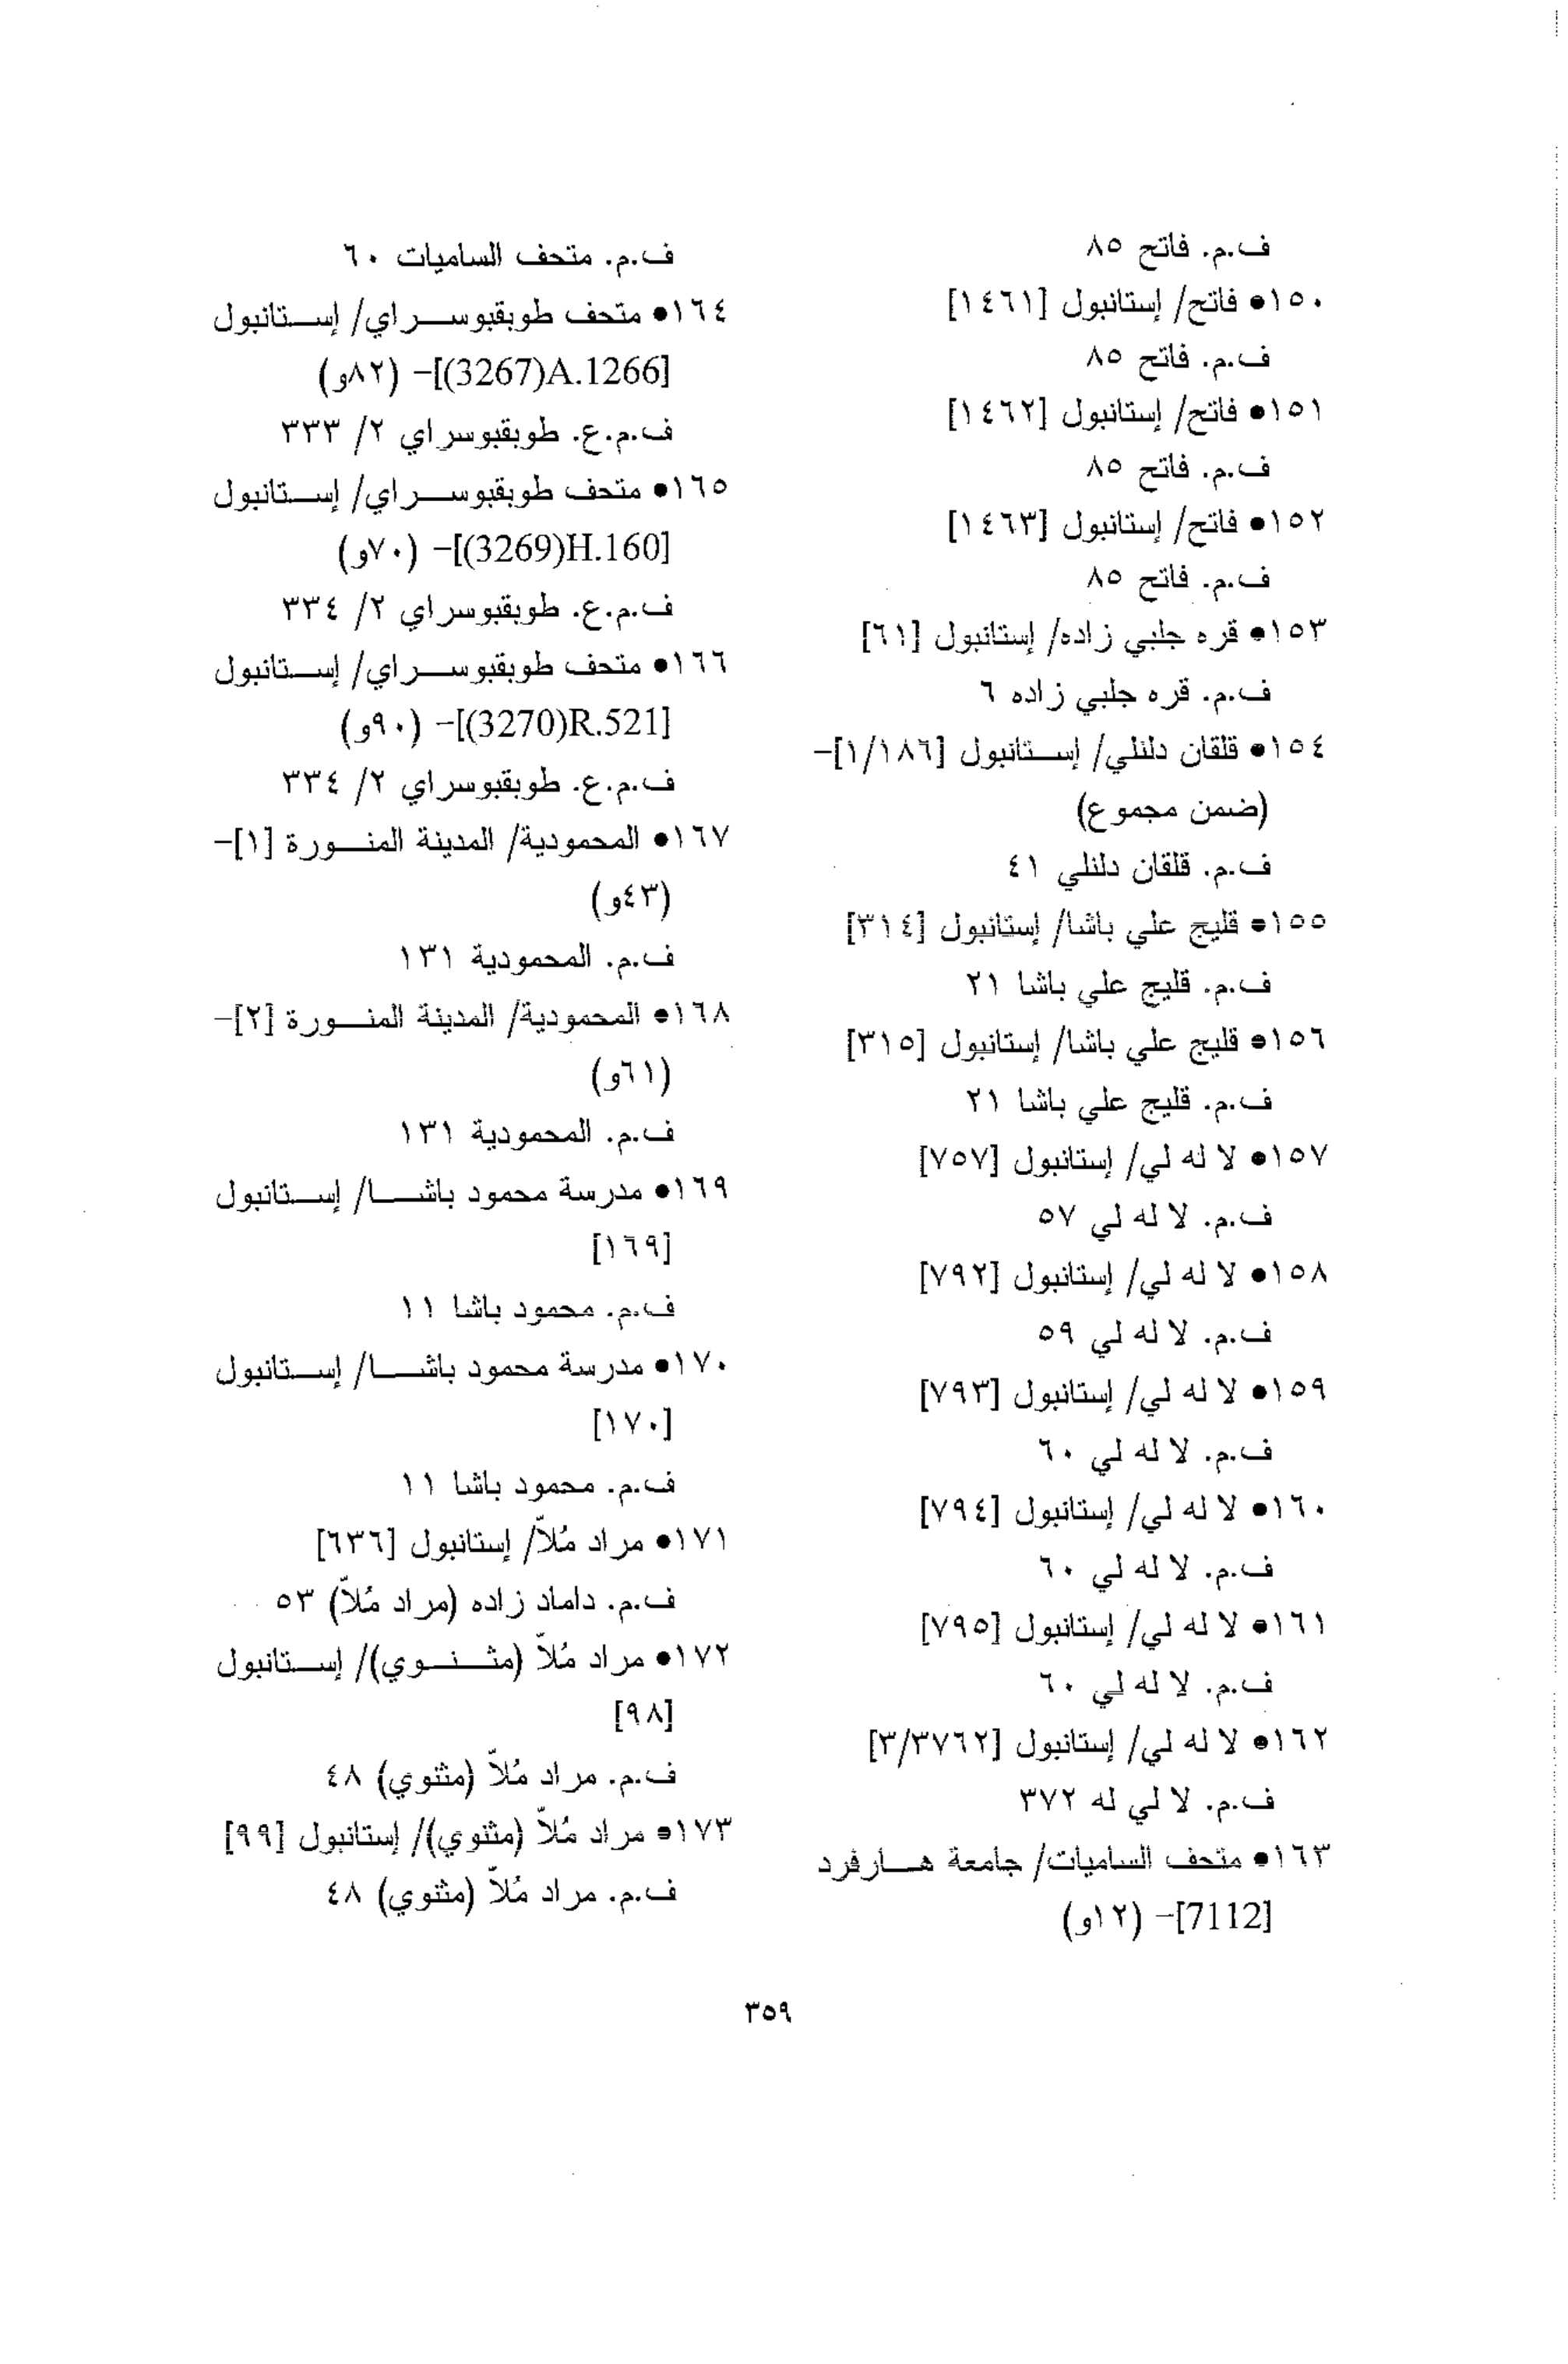 ف.م. فاتح ٨٥
١٥٠• فاتح/ إستانبول [١٤٦١]
ف.م. فاتح ٨٥
١٥١• فاتح/ إستانبول [١٤٦٢]
ف.م. فاتح ٨٥
١٥٢• فاتح/ إستانبول [١٤٦٣]
ف.م. فاتح ٨٥
١٥٣• قره جلبي زاده/ إستانبول [٦١]
ف.م. قره جلبي زاده ٦
١٥٤• قلقان دلنلي/ إستانبول [١/١٨٦]-
(ضمن مجموع)
ف.م. قلقان دلنلي ٤١
١٥٥• قليج علي باشا/ إستانبول [٣١٤]
ف.م. قليج علي باشا ٢١
١٥٦• قليج علي باشا/ إستانبول [٣١٥]
ف.م. قليج علي باشا ٢١
١٥٧• لا له لي/ إستانبول [٧٥٧]
ف.م. لا له لي ٥٧
١٥٨• لا له لي/ إستانبول [٧٩٢]
ف.م. لا له لي ٥٩
١٥٩• لا له لي/ إستانبول [٧٩٣]
ف.م. لا له لي ٦٠
١٦٠• لا له لي/ إستانبول [٧٩٤]
ف.م. لا له لي ٦٠
١٦١• لا له لي/ إستانبول [٧٩٥]
ف.م. لا له لي ٦٠
١٦٢• لا له لي/ إستانبول [٣/٣٧٦٢]
ف.م. لا لي له ٣٧٢
١٦٣• متحف الساميات/ جامعة هارفرد
[7112]- (١٢و)
ف.م. متحف الساميات ٦٠
١٦٤• متحف طوبقبوسراي/ إستانبول
[3267)A.1266)]- (٨٢و)
ف.م.ع. طوبقبوسراي ٢/ ٣٣٣
١٦٥• متحف طوبقبوسراي/ إستانبول
[3269)H.160)]- (٧٠و)
ف.م.ع. طوبقبوسراي ٢/ ٣٣٤
١٦٦• متحف طوبقبوسراي/ إستانبول
[3270)R.521)]- (٩٠و)
ف.م.ع. طوبقبوسراي ٢/ ٣٣٤
١٦٧• المحمودية/ المدينة المنورة [١]-
(٤٣و)
ف.م. المحمودية ١٣١
١٦٨• المحمودية/ المدينة المنورة [٢]-
(٦١و)
ف.م. المحمودية ١٣١
١٦٩• مدرسة محمود باشا/ إستانبول
[١٦٩]
ف.م. محمود باشا ١١
١٧٠• مدرسة محمود باشا/ إستانبول
[١٧٠]
ف.م. محمود باشا ١١
١٧١• مراد مُلاّ/ إستانبول [٦٣٦]
ف.م. داماد زاده (مراد مُلاّ) ٥٣
١٧٢• مراد مُلاّ (مثنوي)/ إستانبول
[٩٨]
ف.م. مراد مُلاّ (مثنوي) ٤٨
١٧٣• مراد مُلاّ (مثنوي)/ إستانبول [٩٩]
ف.م. مراد مُلاّ (مثنوي) ٤٨
٣٥٩